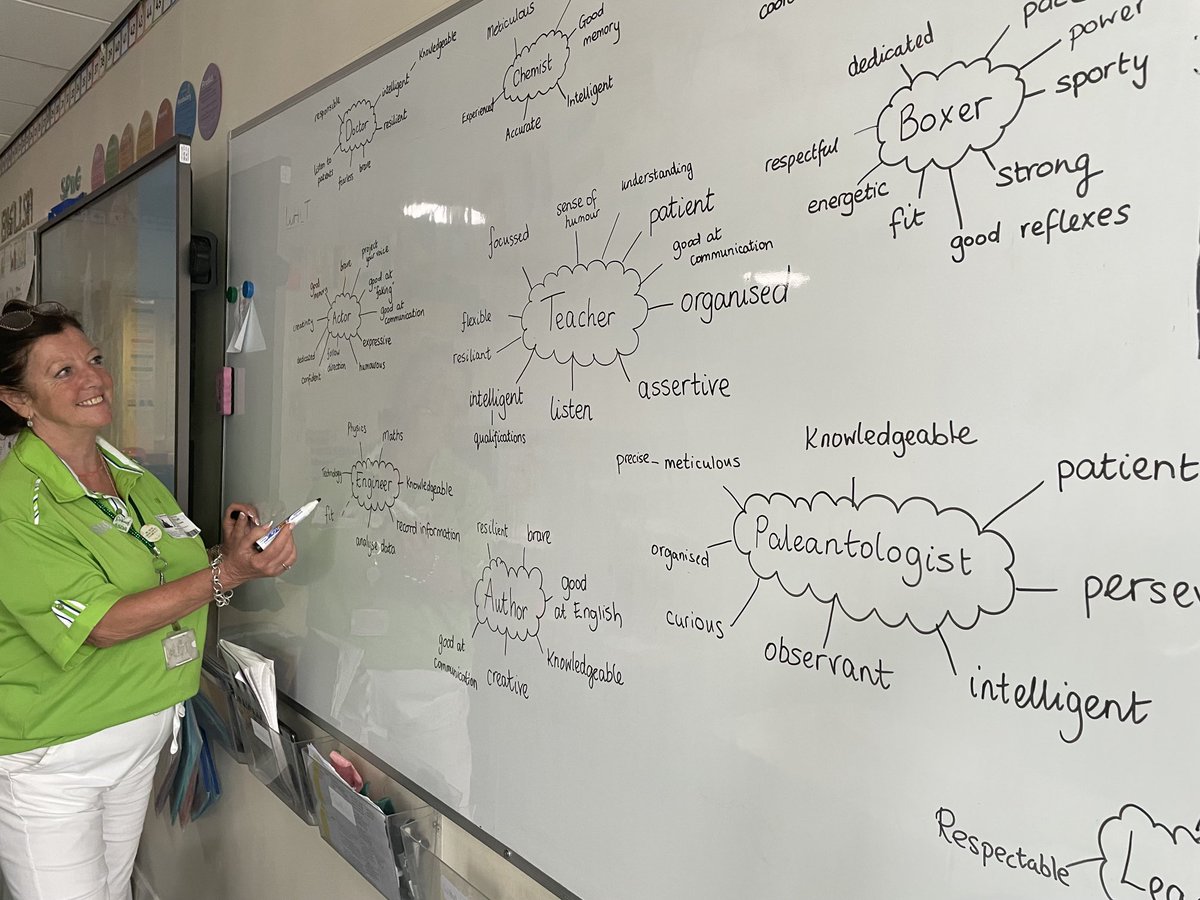 Meticulous
Good
memory
Chemist
Experienced
Accurate
Intelligent
Knowledgeable
intelligent
responsible
Doctor
resilient
listen to
patients
fearless
brave
dedicated
power
sporty
Boxer
respectful
energetic
fit
good reflexes
strong
SPaG
ENGLISH
focussed
sense of
humour
understanding
patient
good at
communication
Teacher
organised
flexible
resiliant
intelligent
qualifications
listen
assertive
good
memory
brave
project
your voice
good at
"faking"
creativity
Actor
good at
communication
expressive
dedicated
confident
follow
direction
humourous
Physics
maths
Technology
Engineer
Knowledgeable
fit
analyse data
record information
resilient
brave
Author
good
at English
good at
communication
creative
Knowledgeable
Knowledgeable
precise - meticulous
patient
Paleantologist
organised
curious
observant
intelligent
Respectable